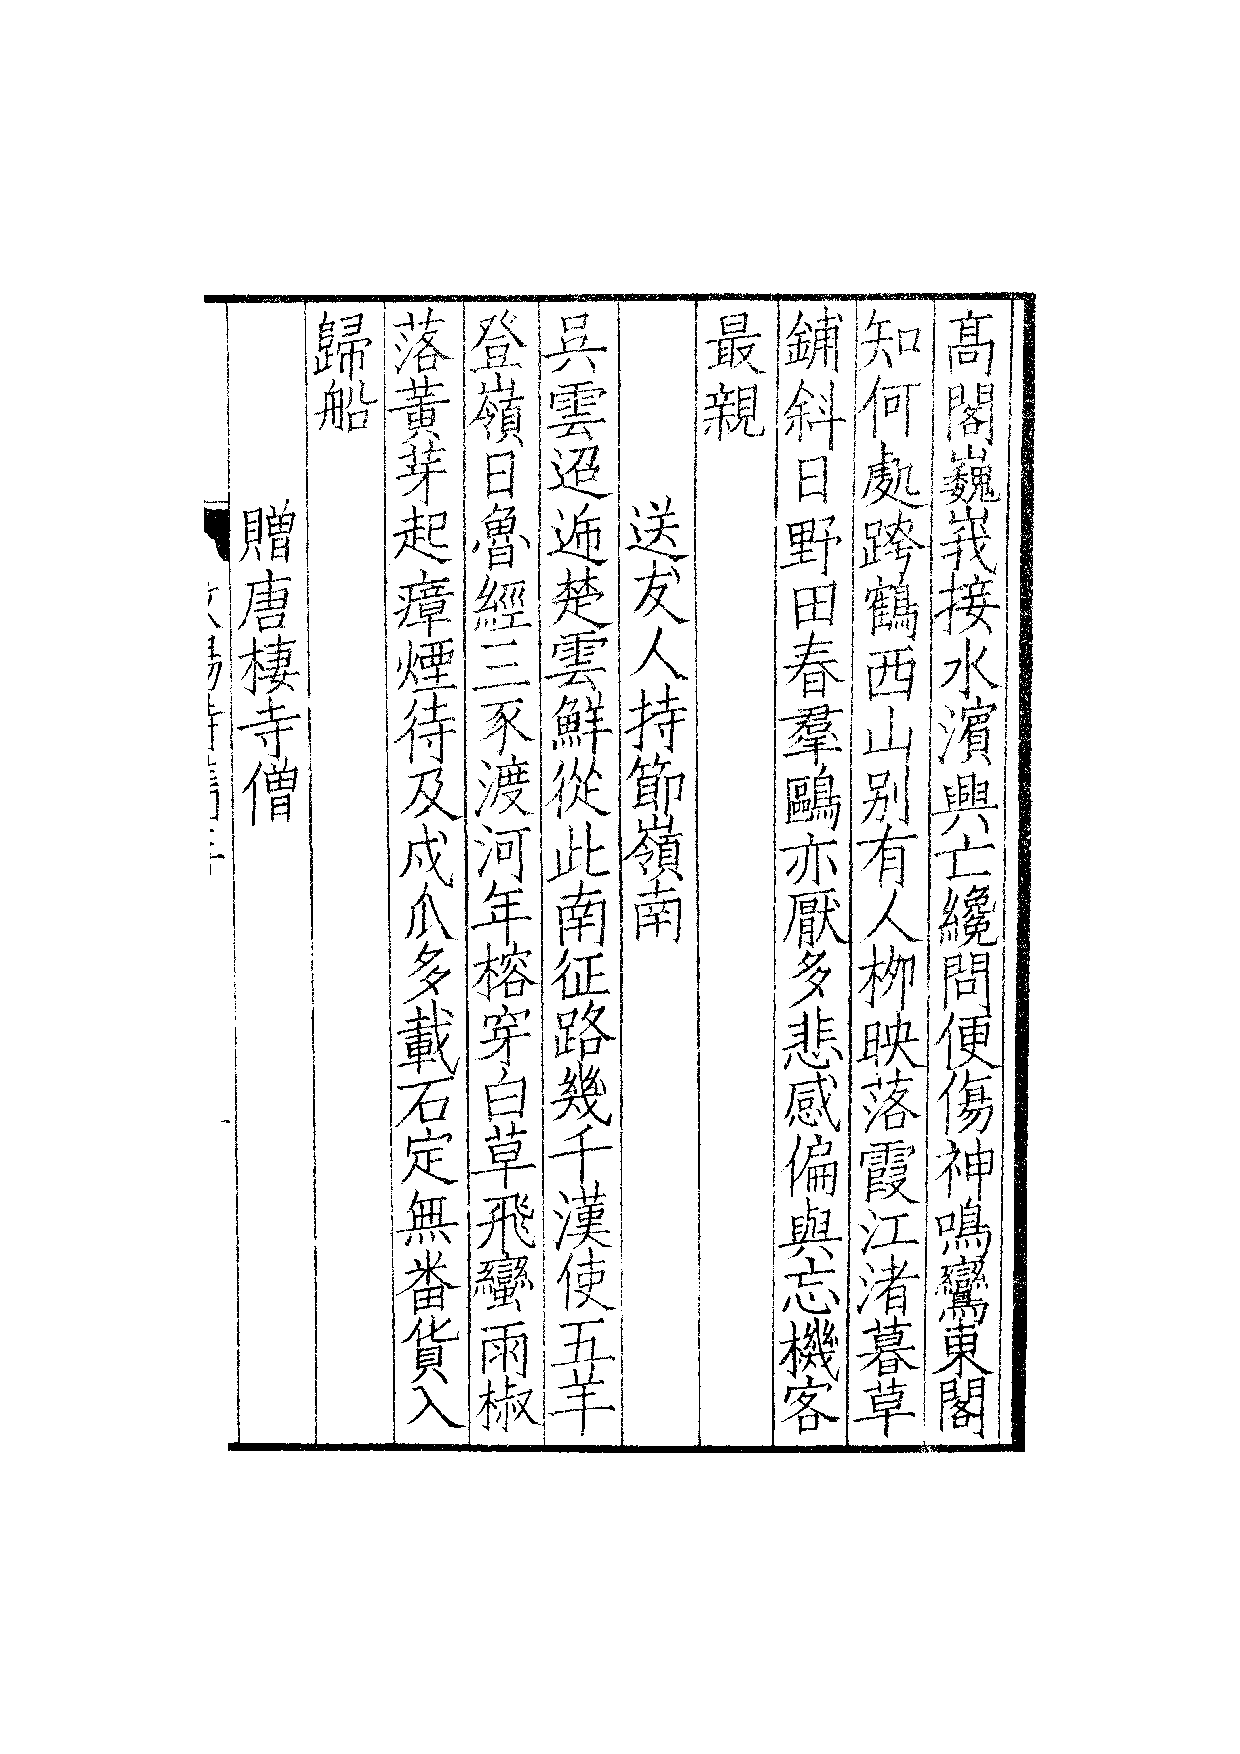 髙閣巍峩接水濱興亡纔問便傷神鳴鸞東閣
知何處跨鶴西山别有人栁映落霞江渚暮草
鋪斜日野田春羣鷗亦厭多悲感偏與忘機客
最親
送友人持節嶺南
吳雲迢遞楚雲鮮從此南征路幾千漢使五羊
登嶺日魯經三豕渡河年榕穿白草飛蠻雨椒
落黄芽起瘴煙待及戍瓜多載石定無番貨入
歸船
贈唐棲寺僧